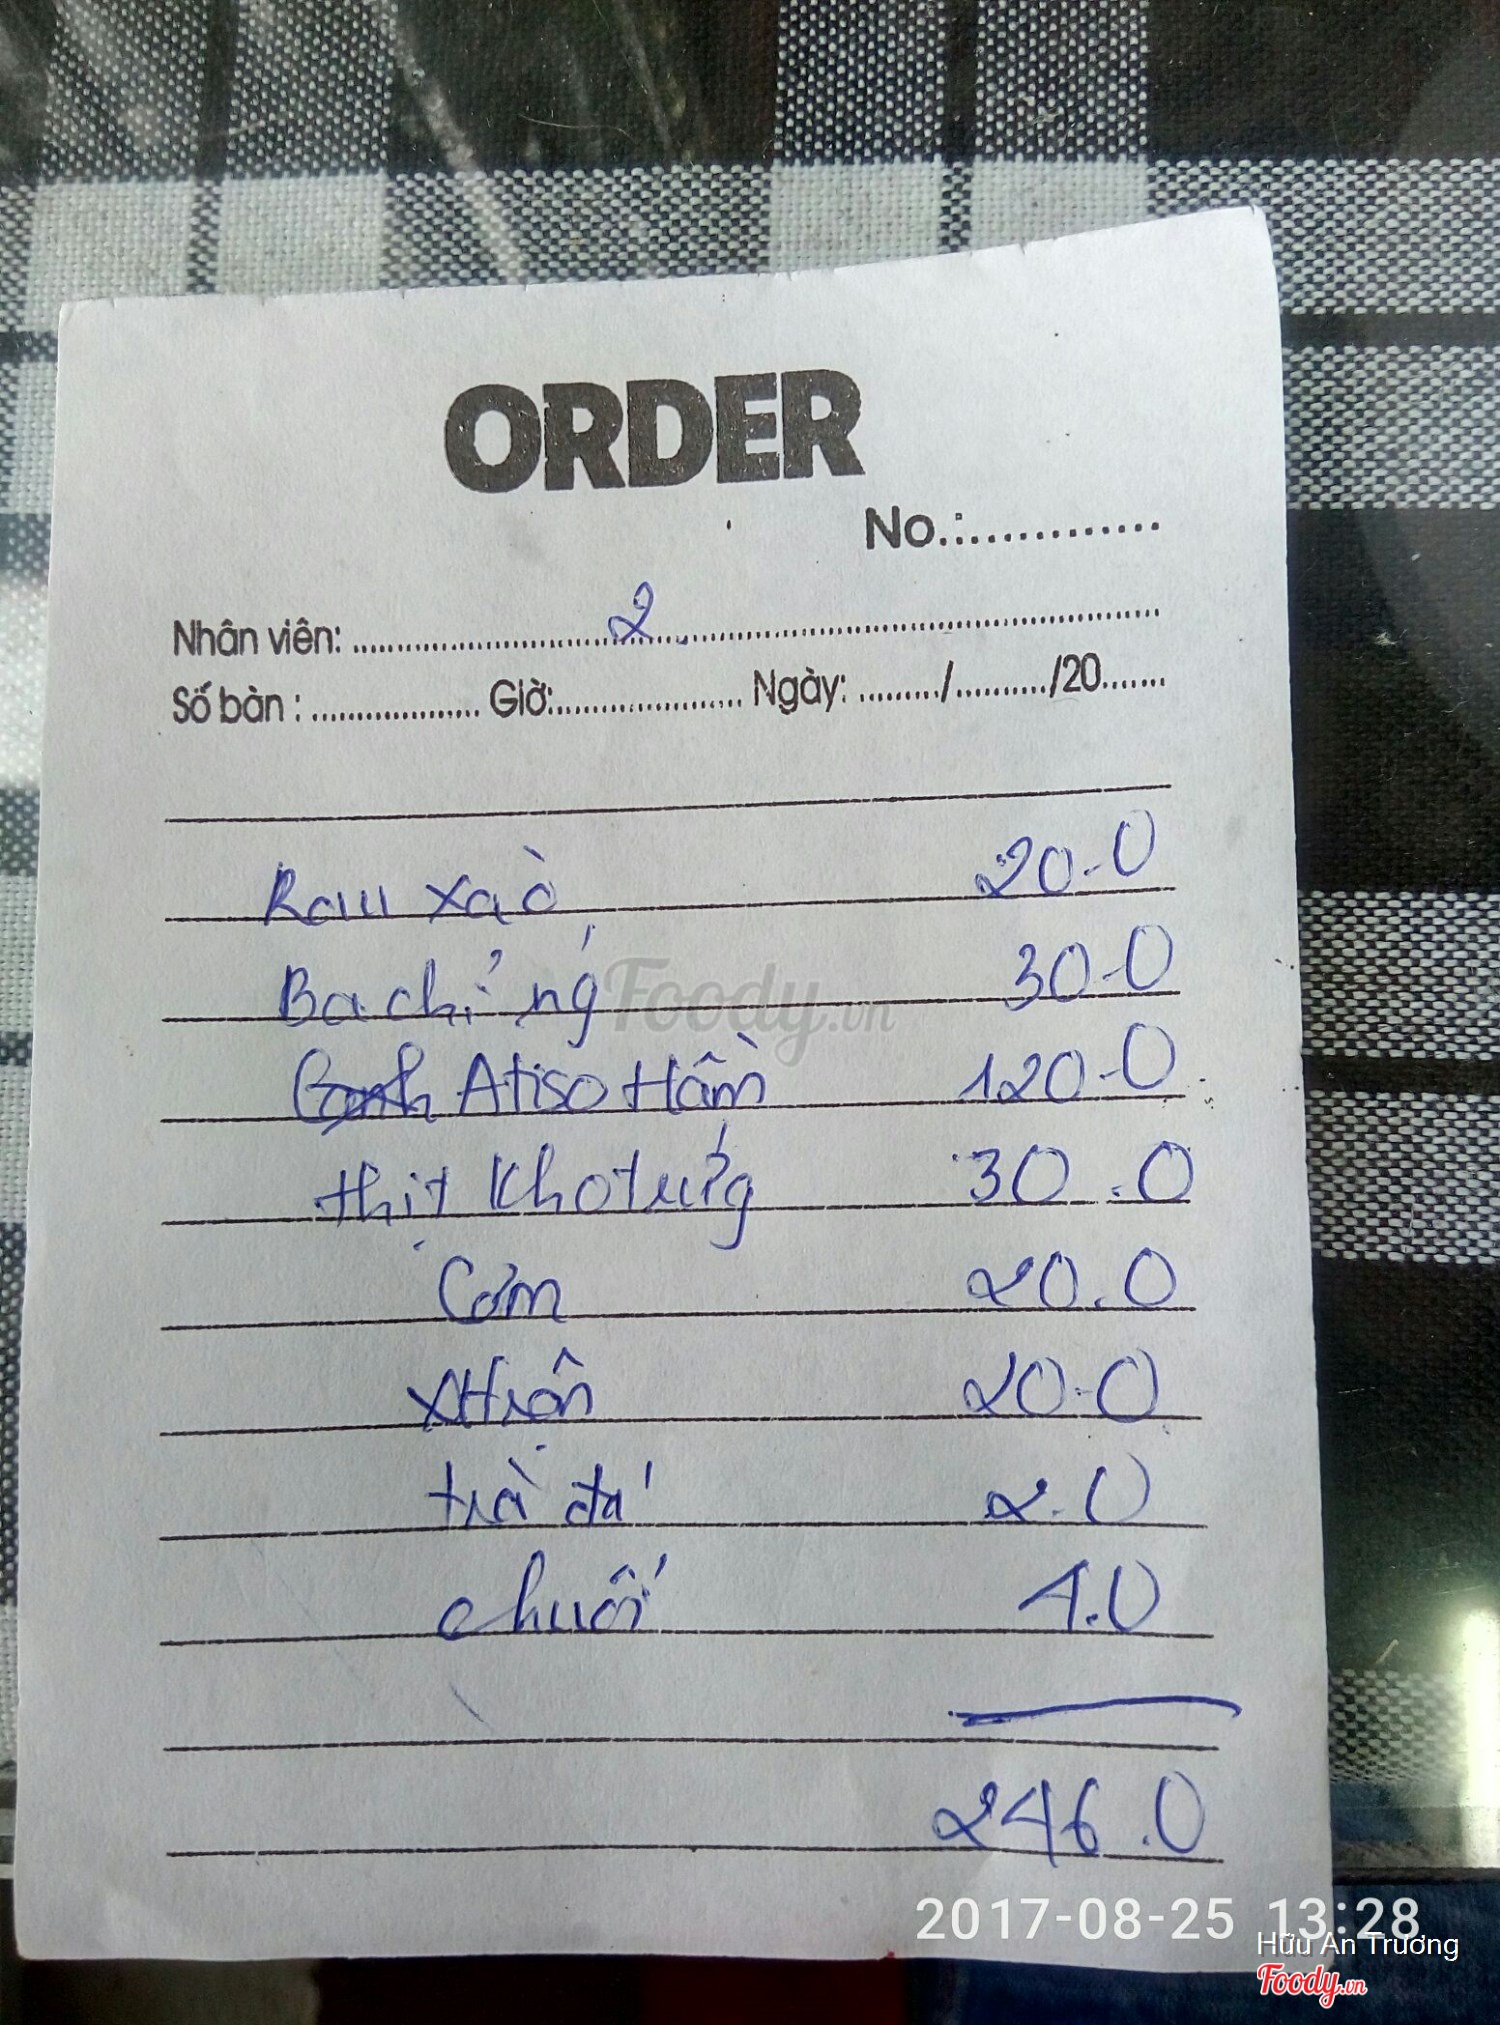 ORDER
No.:.............
Nhân viên: ........................2.........................
Số bàn : ................... Giờ:..................... Ngày: ........./........../20.......
Rau xào 20.0
Ba chỉ nướng 30.0
Atiso Hầm 120.0
thịt kho trứng 30.0
Cơm 20.0
20.0
trà đá 2.0
chuối 4.0
246.0
Foody.vn
2017-08-25 13:28
Hữu An Trương
Foody.vn